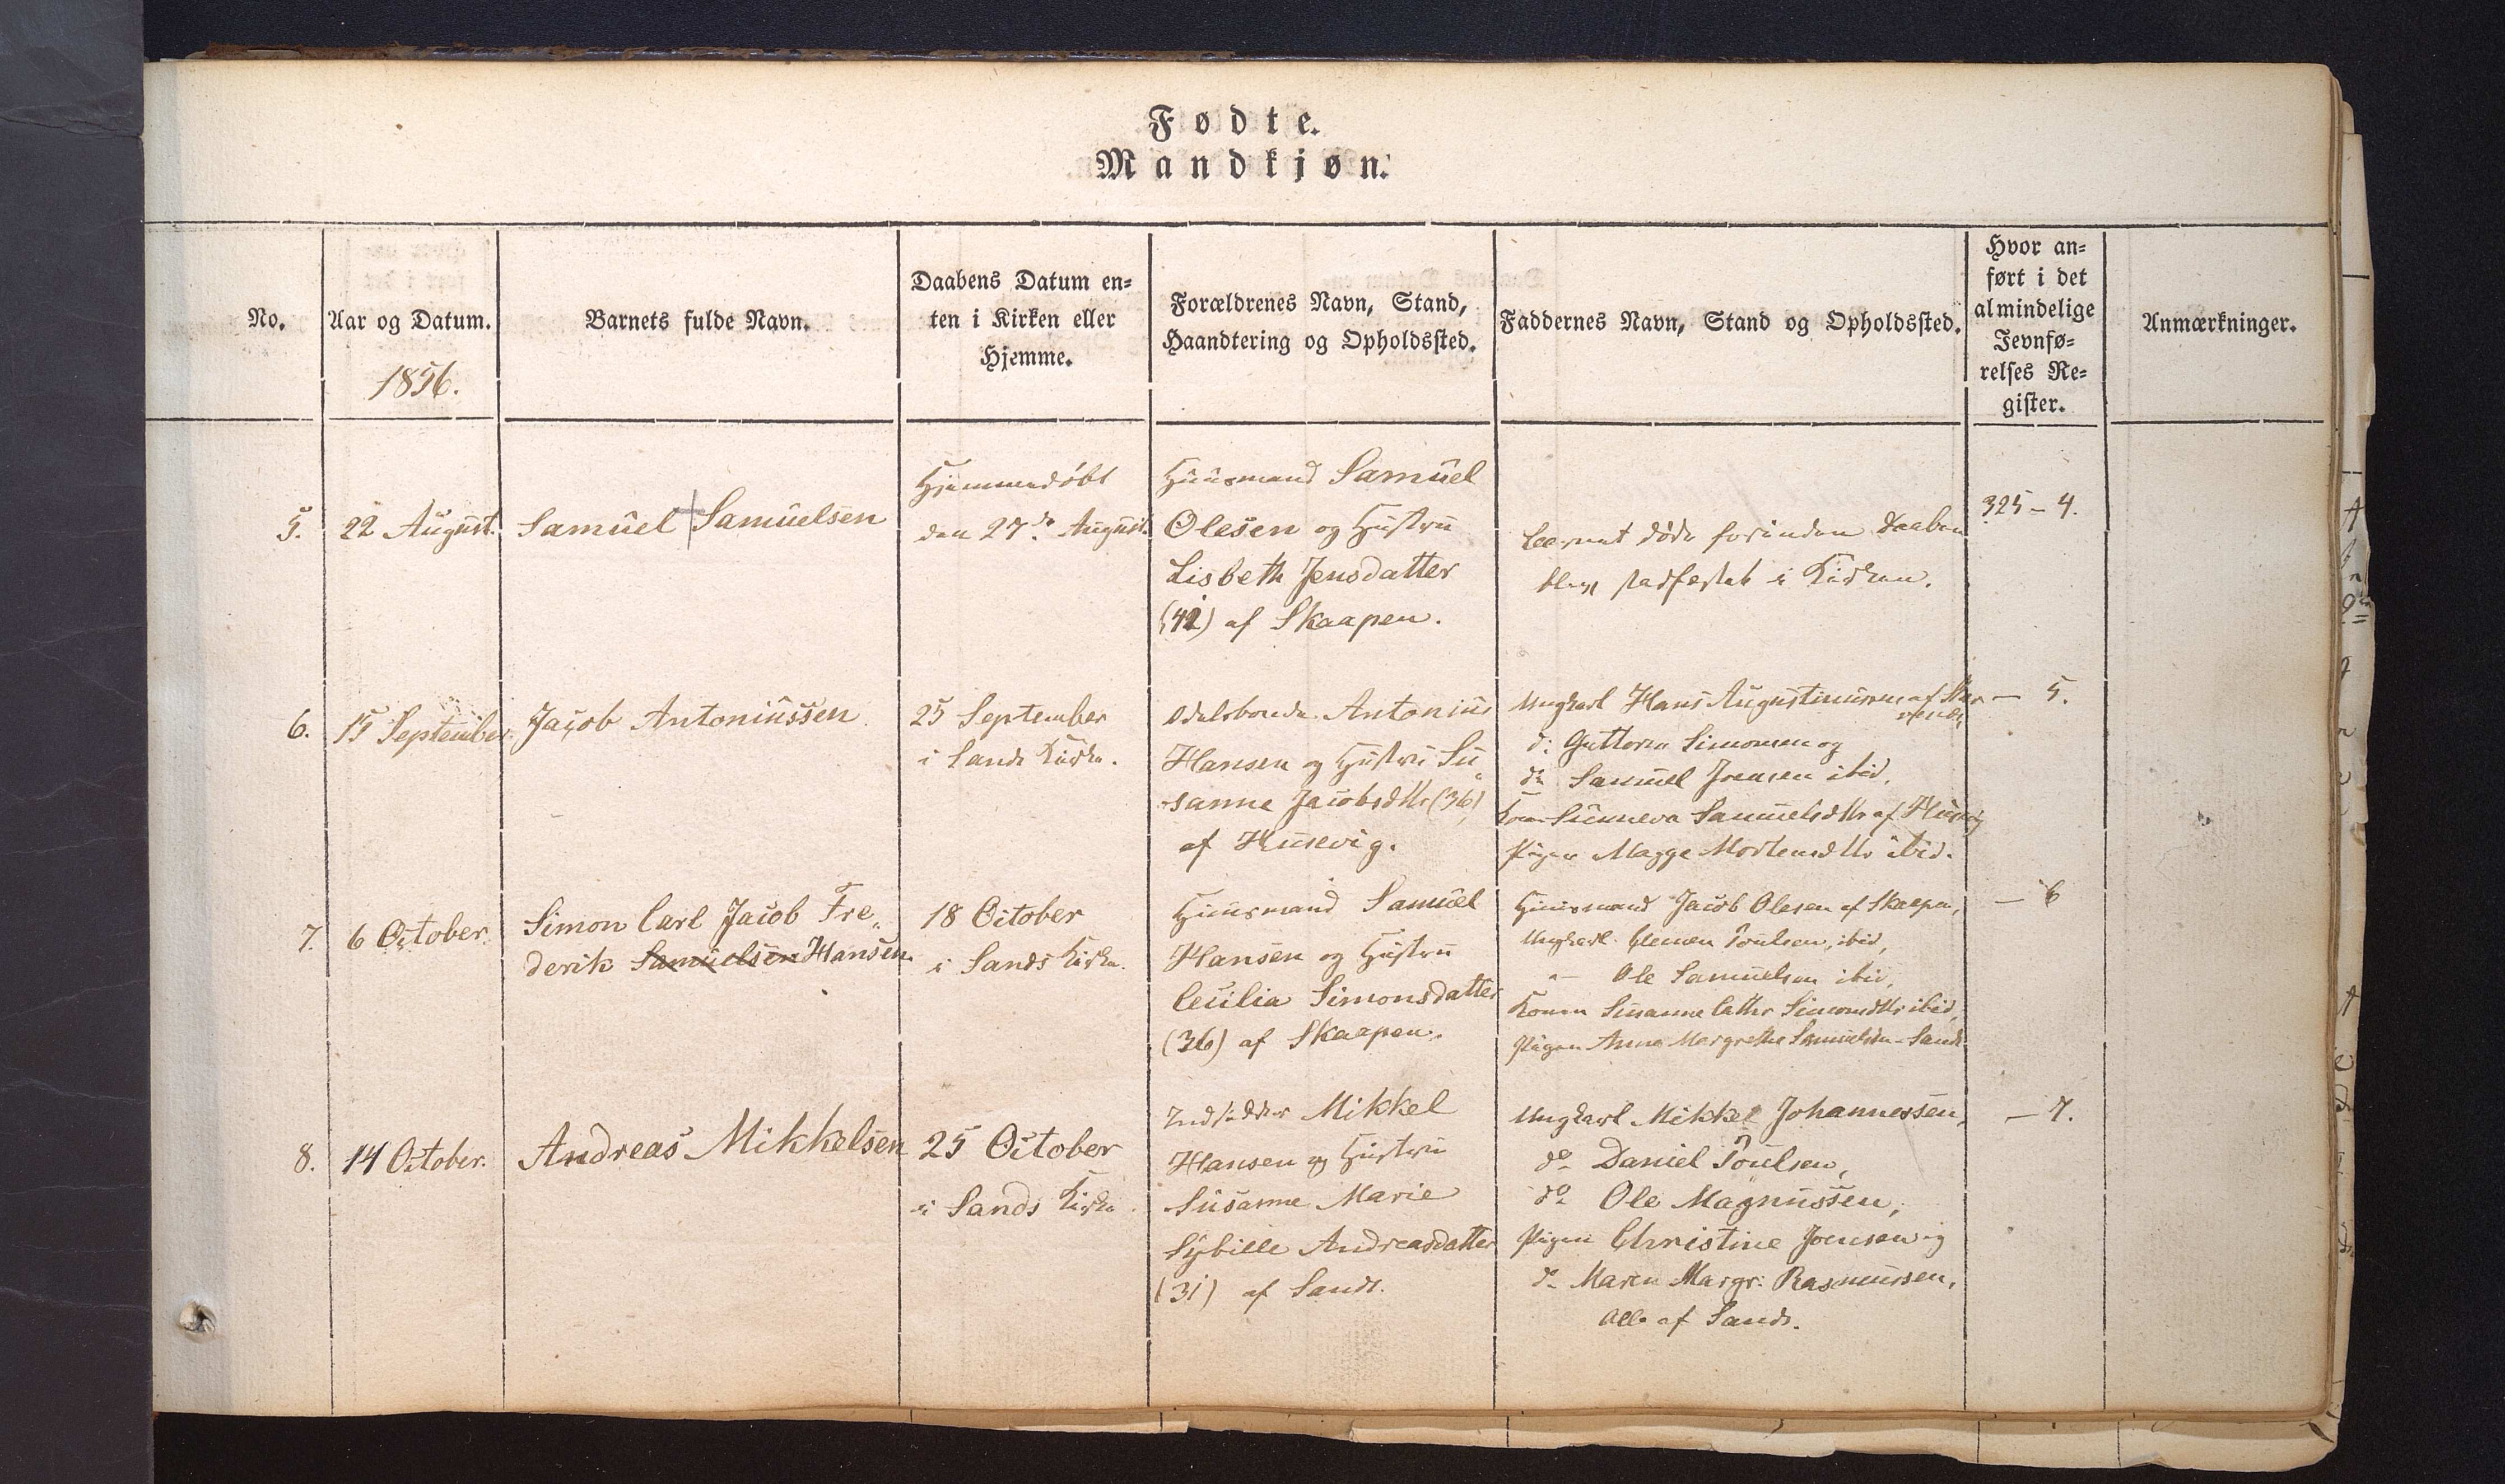 Fødte.
Mandkjøn.
No.
Aar og Datum.
1856.
Barnets fulde Navn.
Daabens Datum en=
ten i Kirken eller
Hjemme.
Forældrenes Navn, Stand,
Haandtering og Opholdssted.
Faddernes Navn, Stand og Opholdssted.
Hvor an=
ført i det
almindelige
Jevnfø=
relses Re=
gister.
Anmærkninger.
5.
22 August.
Samuel Samuelsen
Hjemmedøbt
den 27de August.
Huusmand Samuel
Olesen og Hustru
Lisbeth Jensdatter
(42) af Skaapen.
Barnet døde forinden Daaben
blev stadfæstet i Kirken.
325 - 4.
6.
15 September
Jacob Antoniussen
25 September
i Sands Kirke.
Odelsbonde Antonius
Hansen og Hustru Su„
sanne Jacobsdttr (36)
af Husevig.
Ungkarl Hans Augustinussen af
do Guttorm Simonsen og
do Samuel Joensen ibid.
Kone Sunneva Samuelsdttr af Husevig
Pigen Magge Mortensdttr ibid.
— 5.
7.
6 October.
Simon Carl Jacob Fre„
derik Samuelsen Hansen.
18 October
i Sands Kirke.
Huusmand Samuel
Hansen og Hustru
Cecilia Simonsdatter
(36) af Skaapen.
Huusmand Jacob Olesen af Skaapen,
Ungkarl Clemen Poulsen, ibid,
"— Ole Samuelsen ibid,
Konen Susanne Cathr Simonsdttr ibid,
Pigen Anna Margrethe Sands.
— 6
8.
14 October.
Andreas Mikkelsen
25 October
i Sands Kirke.
Indsidder Mikkel
Hansen og Hustru
Susanne Marie
Sybille Andreasdatter
(31) af Sand.
Ungkarl Mikkel Johannessen,
do Daniel Poulsen,
do Ole Magnussen,
Pigen Christine Joensen og
do Maren Margr: Rasmussen,
Alle af Sand.
— 7.